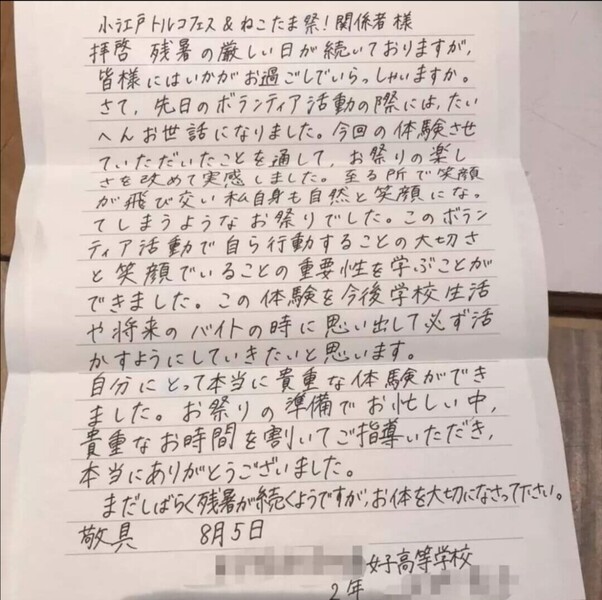 小江戸トルコフェス&ねこたま祭!関係者様
拝啓 残暑の厳しい日が続いておりますが、
皆様にはいかがお過ごしでいらっしゃいますか。
さて、先日のボランティア活動の際には、たい
へんお世話になりました。今回の体験させ
ていただいたことを通して、お祭りの楽し
さを改めて実感しました。至る所で笑顔
が飛び交い私自身も自然と笑顔にな っ
てしまうようなお祭りでした。このボラン
ティア活動で自ら行動することの大切さ
と笑顔でいることの重要性を学ぶことが
できました。この体験を今後学校生活
や将来のバイトの時に思い出して必ず活
かすようにしていきたいと思います。
自分にとって本当に貴重な体験ができ
ました。お祭りの準備でお忙しい中、
貴重なお時間を割いてご指導いただき、
本当にありがとうございました。
まだしばらく残暑が続くようですが、お体を大切になさって下さい。
敬具 8月5日
女子高等学校
2年